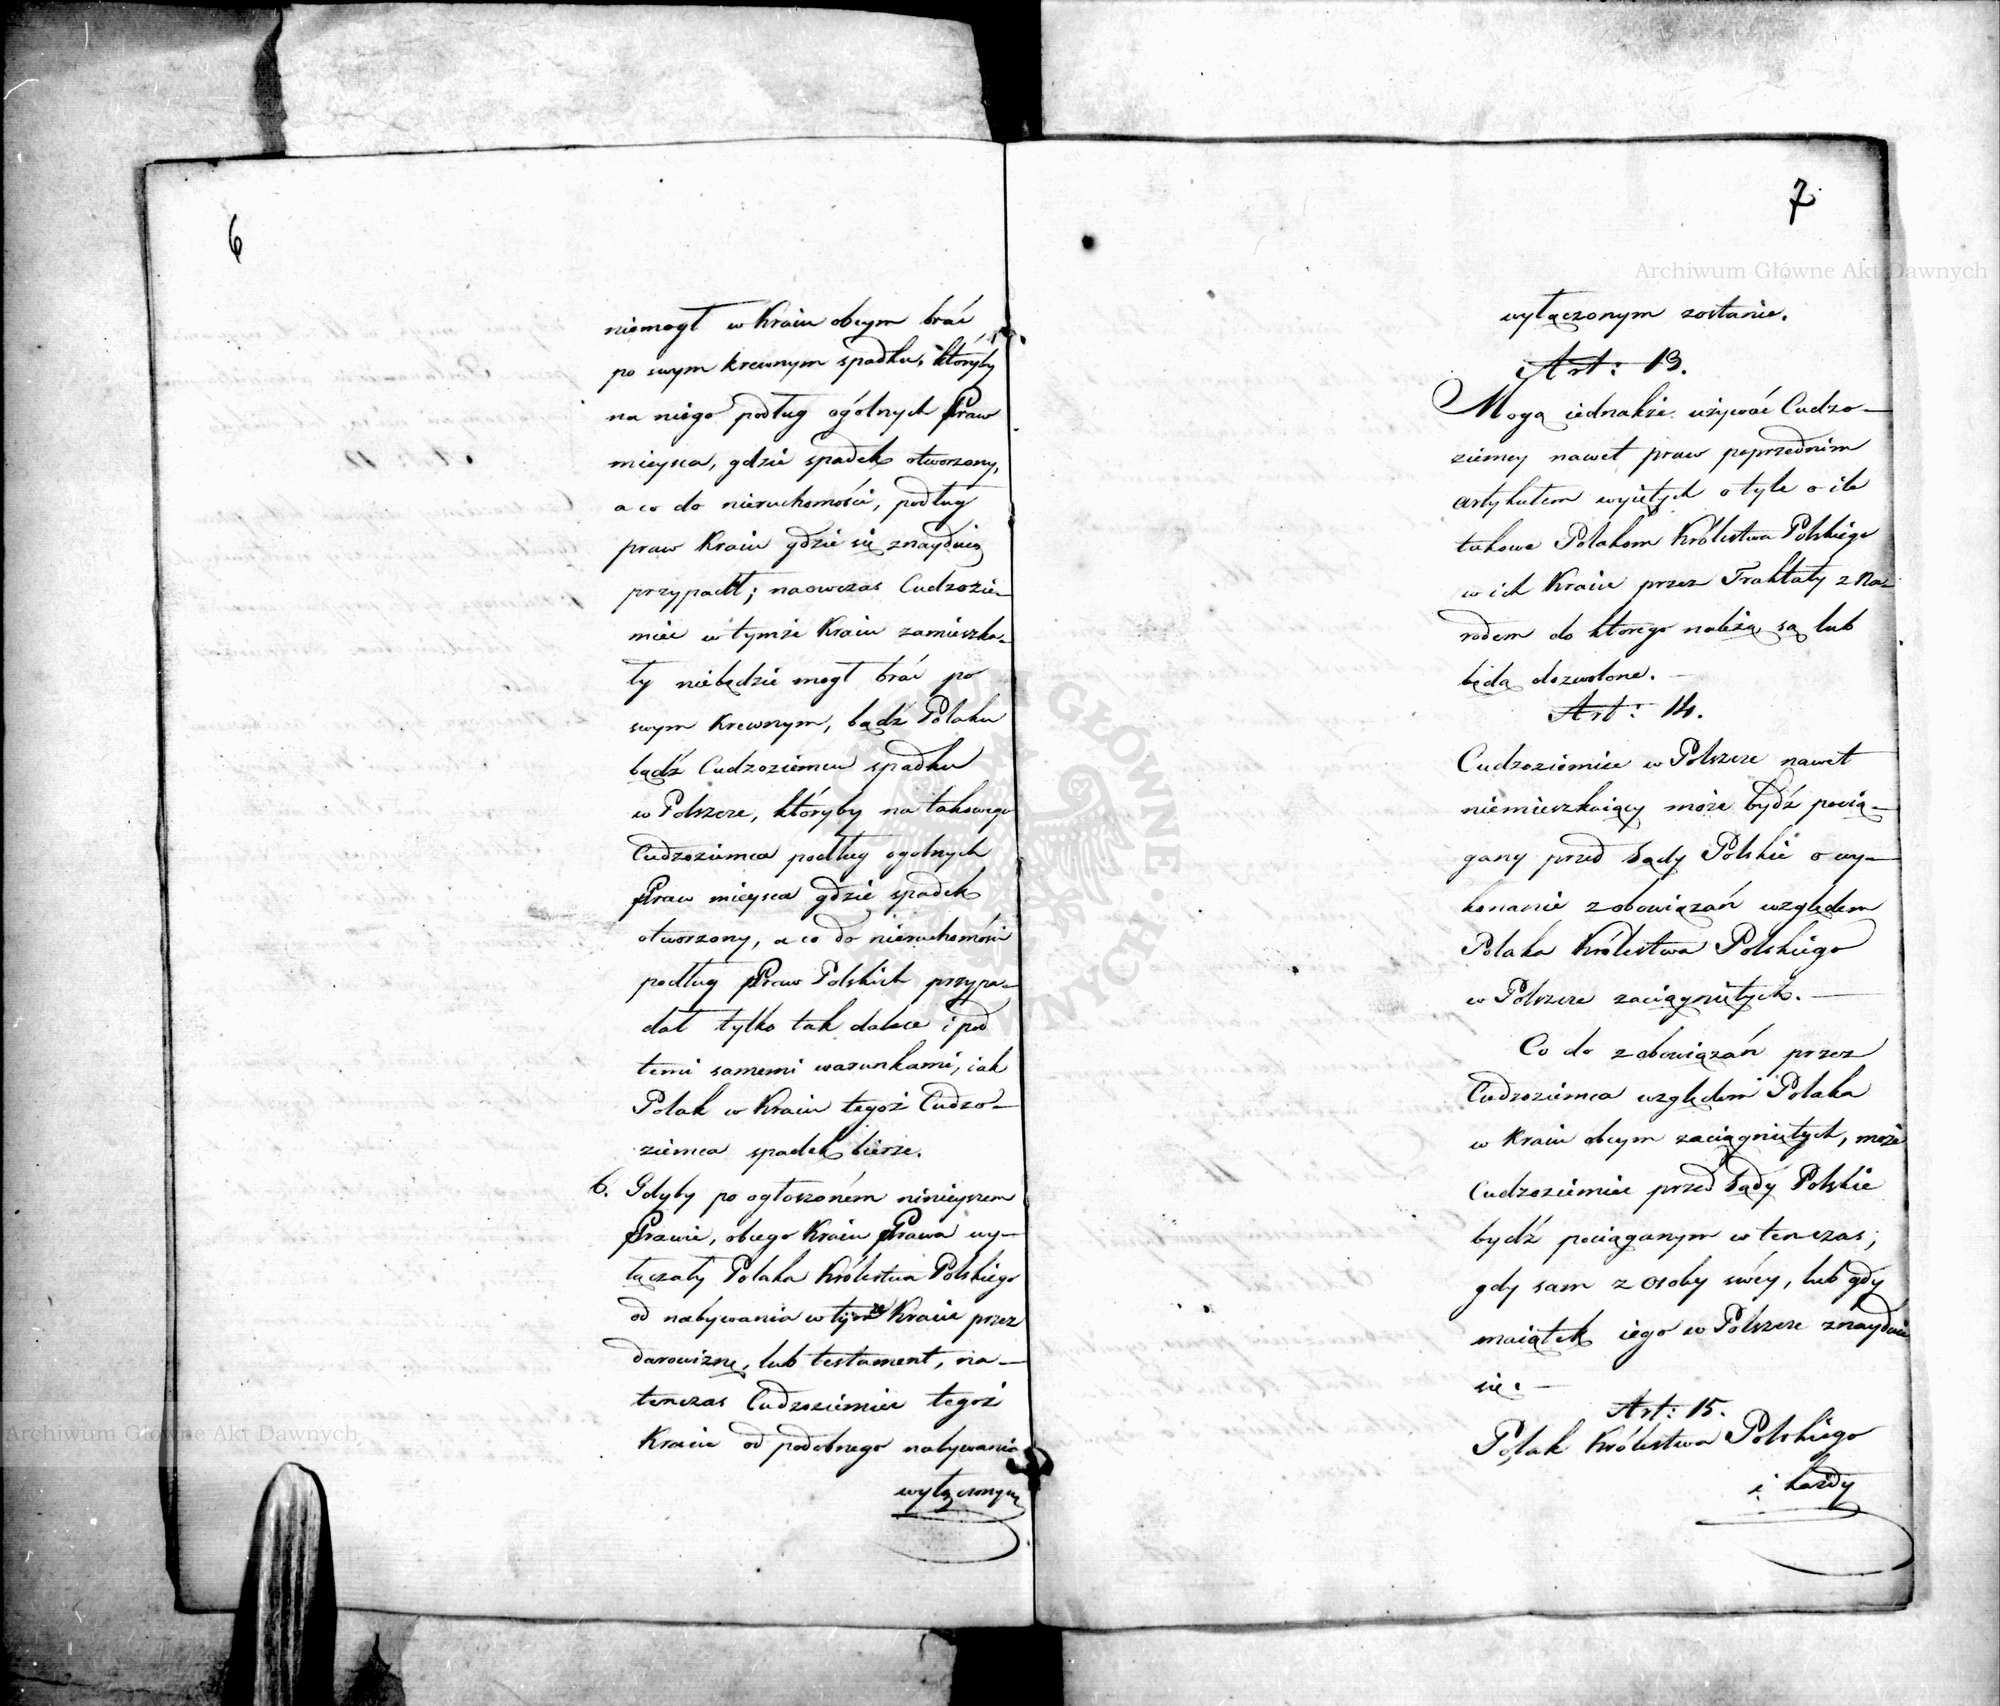 6
niemogł w Kraiu obcym brać
po swym krewnym spadku, któryby
na niego podług ogólnych Praw
mieysca, gdzie spadek otworzony,
a co do nieruchomości, podług
praw Kraiu gdzie się znayduią
przypadł; naowczas Cudzozie-
miec w tymże Kraiu zamieszka-
ły niebędzie mogł brać po
swym Krewnym, bądź Polaku
bądź Cudzoziemcu spadku
w Polszcze, któryby na takowego
Cudzoziemca podług ogolnych
Praw mieysca gdzie spadek
otworzony, a co do nieruchomości
podług Praw Polskich przypa-
dał tylko tak dalece i pod
temi samemi warunkami, iak
Polak w Kraiu tegoż Cudzo-
ziemca spadek bierze.
6. Gdyby po ogłoszoném ninieyszem
Prawie, obcego Kraiu Prawa wy-
łączały Polaka Królestwa Polskiego
od nabywania w tymże Kraiu przez
darowiznę, lub testament, na-
tenczas Cudzoziemiec tegoż
Kraiu od podobnego nabywania
wyłączonym
7
wyłączonym zostanie.
Art: 13.
Mogą iednakże używać Cudzo-
ziemcy nawet praw poprzednim
artykułem wyiętych o tyle o ile
takowe Polakom Królestwa Polskiego
w ich Kraiu przez Traktaty z Na-
rodem do ktorego należą są lub
będą dozwolone.
Art: 14.
Cudzoziemiec w Polszcze nawet
niemieszkaiący może bydź pocią-
gany przed Sądy Polskie o wy-
konanie zobowiązań względem
Polaka Królestwa Polskiego
w Polszcze zaciągniętych.
Co do zobowiązań przez
Cudzoziemca względem Polaka
w Kraiu obcym zaciągniętych, może
Cudzoziemiec przed Sądy Polskie
bydź pociąganym w tenczas,
gdy sam z Osoby swéy, lub gdy
maiątek iego w Polszcze znayduie
się.
Art: 15.
Polak Królestwa Polskiego
i każdy
Archiwum Główne Akt Dawnych
Archiwum Główne Akt Dawnych